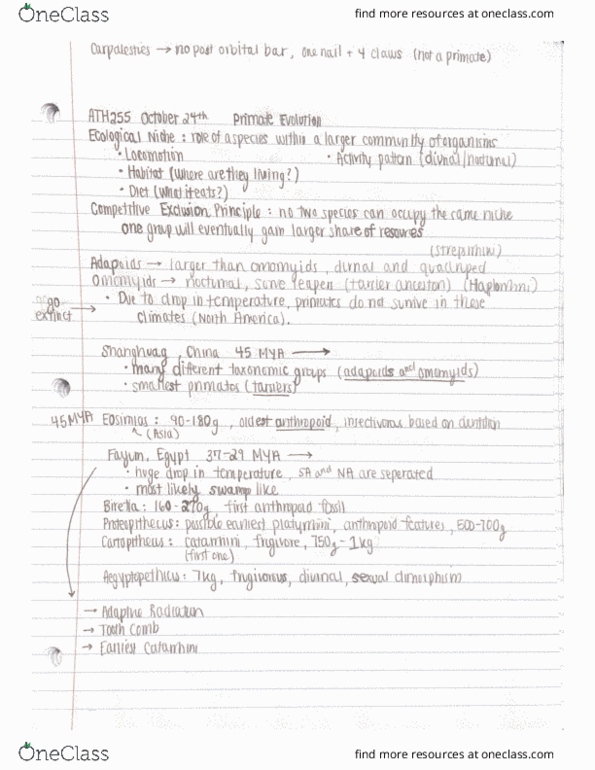 OneClass
find more resources at oneclass.com
Carpalesties → no post orbital bar, one nail + 4 claws (not a primate)
ATH255 October 24th Primate Evolution
Ecological Niche : role of a species within a larger community of organisms
• Locomotion • Activity pattern (diurnal/nocturnal)
• Habitat (where are they living?)
• Diet (what it eats?)
Competitive Exclusion Principle : no two species can occupy the same niche
one group will eventually gain larger share of resources
(strepsirhini)
Adapoids → larger than omomyids, diurnal and quadruped
Omomyids → nocturnal, some leapers (tarsier ancestors) (Haplorhini)
• Due to drop in temperature, primates do not survive in these
extinct → climates (North America).
Shanghuag, China 45 MYA →
• many different taxonomic groups (adapoids and omomyids)
• smallest primates (tarsiers)
45MYA Eosimias : 90-180g, oldest anthropoid, insectivorous based on dentition
(Asia)
Fayum, Egypt 37-29 MYA →
• huge drop in temperature, SA and NA are seperated
• most likely swamp like
Biretia : 160-270g, first anthropoid fossil
Proteopithecus : possible earliest platyrrini, anthropoid features, 500-700g
Catopithecus : catarrhini, frugivore, 750g-1kg
(first one)
Aegyptopethicus : 7kg, frugivorous, diurnal, sexual dimorphism
→ Adaptive Radiation
→ Tooth Comb
→ Earliest Catarrhini
OneClass
find more resources at oneclass.com